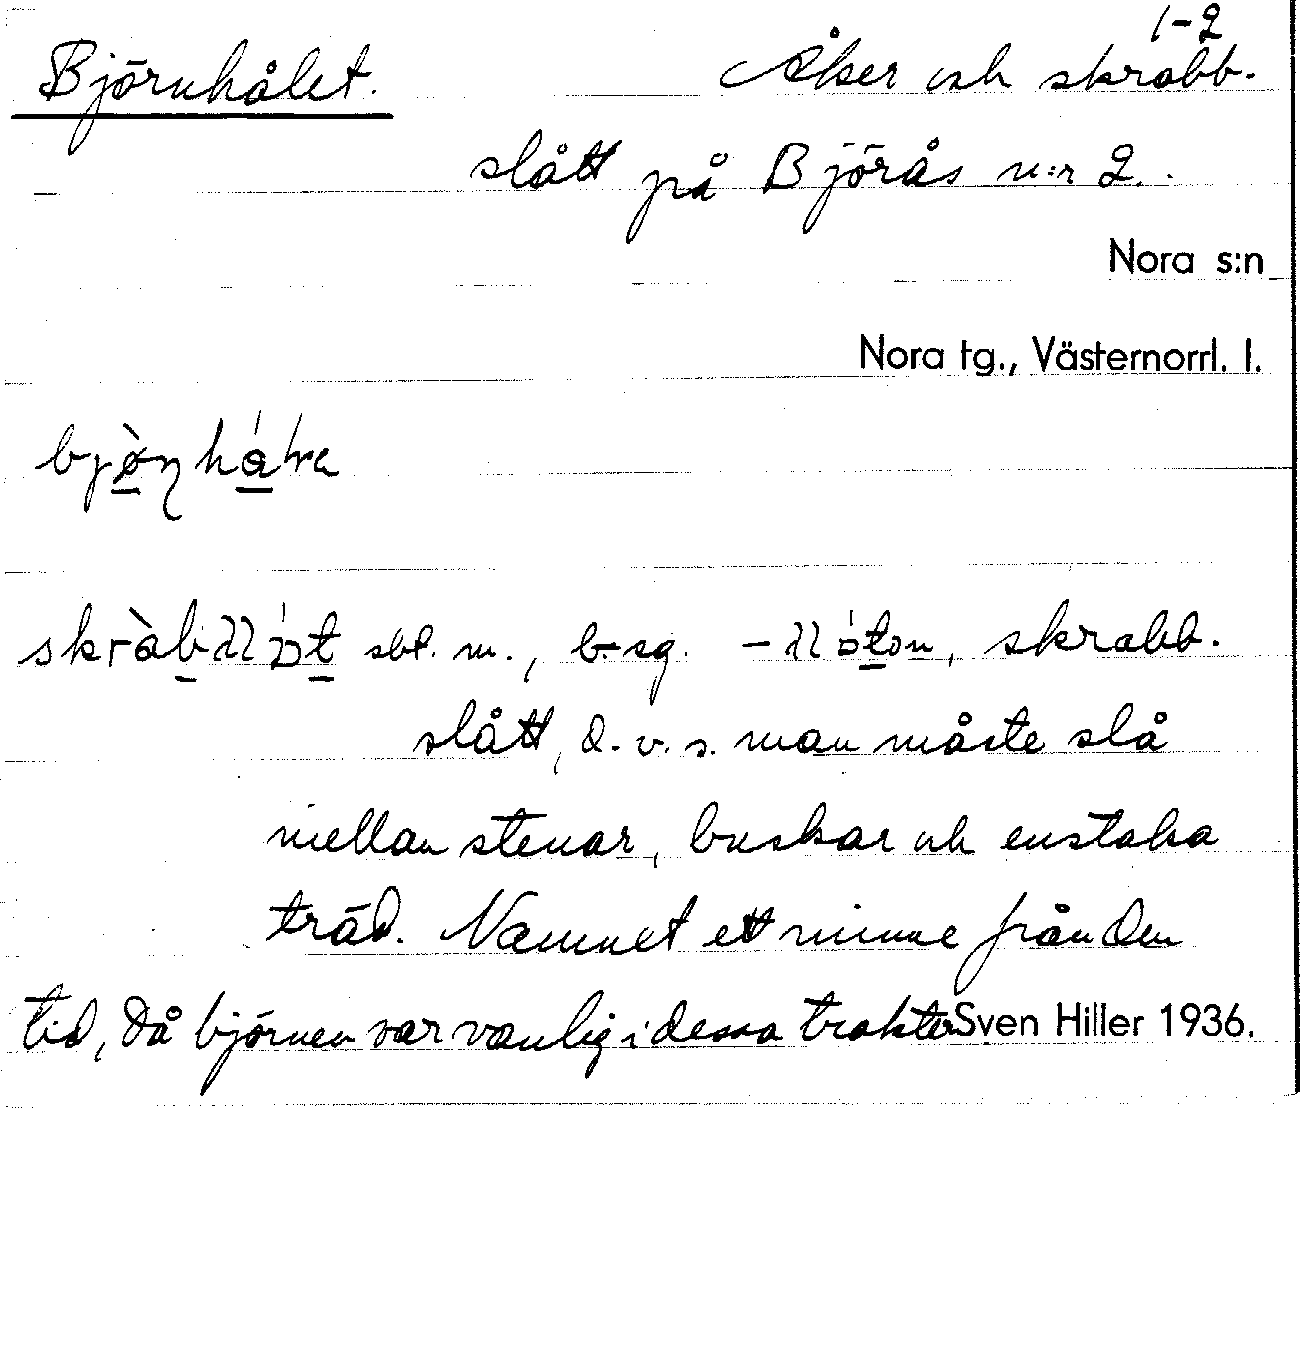 1-2
Björnhålet. Åker och skrabb-
slått på Björås n:r 2.
Nora s:n
Nora tg., Västernorrl. l.
sbt. m., b. sg. skrabb-
slått, d. v. s. man måste slå
mellan stenar, buskar och enstaka
träd. Namnet ett minne från den
tid, då björnen var vanlig i dessa trakter Sven Hiller 1936.